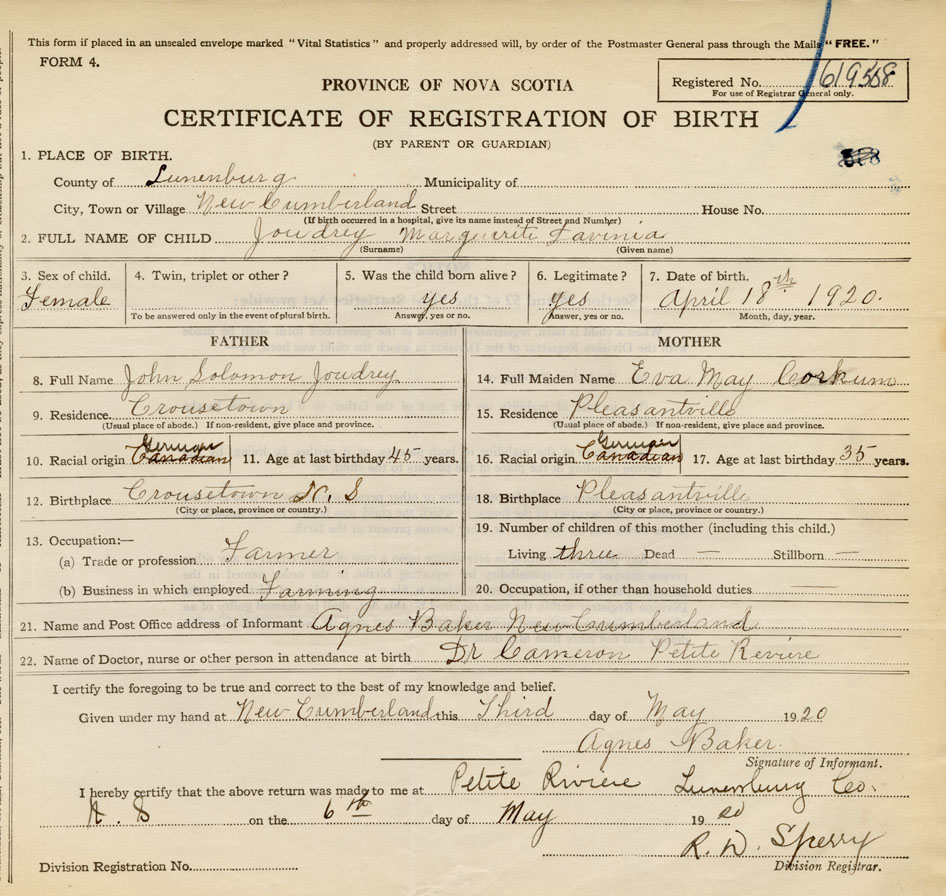 This form if placed in an unsealed envelope marked "Vital Statistics" and properly addressed will, by order of the Postmaster General pass through the Mails "FREE."
FORM 4.
PROVINCE OF NOVA SCOTIA
Registered No.
For use of Registrar General only.
CERTIFICATE OF REGISTRATION OF BIRTH
(BY PARENT OR GUARDIAN)
1. PLACE OF BIRTH.
County of Lunenburg Municipality of
City, Town or Village New Cumberland Street House No.
(If birth occurred in a hospital, give its name instead of Street and Number)
2. FULL NAME OF CHILD Joudrey Marguerite Lavinia
(Surname) (Given name)
3. Sex of child. 4. Twin, triplet or other? 5. Was the child born alive? 6. Legitimate? 7. Date of birth.
Female yes yes April 18th 1920.
To be answered only in the event of plural birth. Answer, yes or no. Answer, yes or no. Month, day, year.
FATHER MOTHER
8. Full Name John Solomon Joudrey 14. Full Maiden Name Eva May Corkum
9. Residence. Crousetown 15. Residence Pleasantville
(Usual place of abode.) If non-resident, give place and province. (Usual place of abode.) If non-resident, give place and province.
German German
10. Racial origin Canadian 11. Age at last birthday 45 years. 16. Racial origin Canadian 17. Age at last birthday 35 years.
12. Birthplace Crousetown N. S 18. Birthplace Pleasantville
(City or place, province or country.) (City or place, province or country.)
13. Occupation:— 19. Number of children of this mother (including this child.)
(a) Trade or profession Farmer Living three Dead — Stillborn —
(b) Business in which employed Farming 20. Occupation, if other than household duties
21. Name and Post Office address of Informant Agnes Baker New Cumberland
22. Name of Doctor, nurse or other person in attendance at birth Dr Cameron Petite Reviere
I certify the foregoing to be true and correct to the best of my knowledge and belief.
Given under my hand at New Cumberland this Third day of May 1920
Agnes Baker.
Signature of Informant.
I hereby certify that the above return was made to me at Petite Riviere Lunenburg Co.
N. S on the 6th day of May 1920
R. W. Sperry
Division Registration No. Division Registrar.